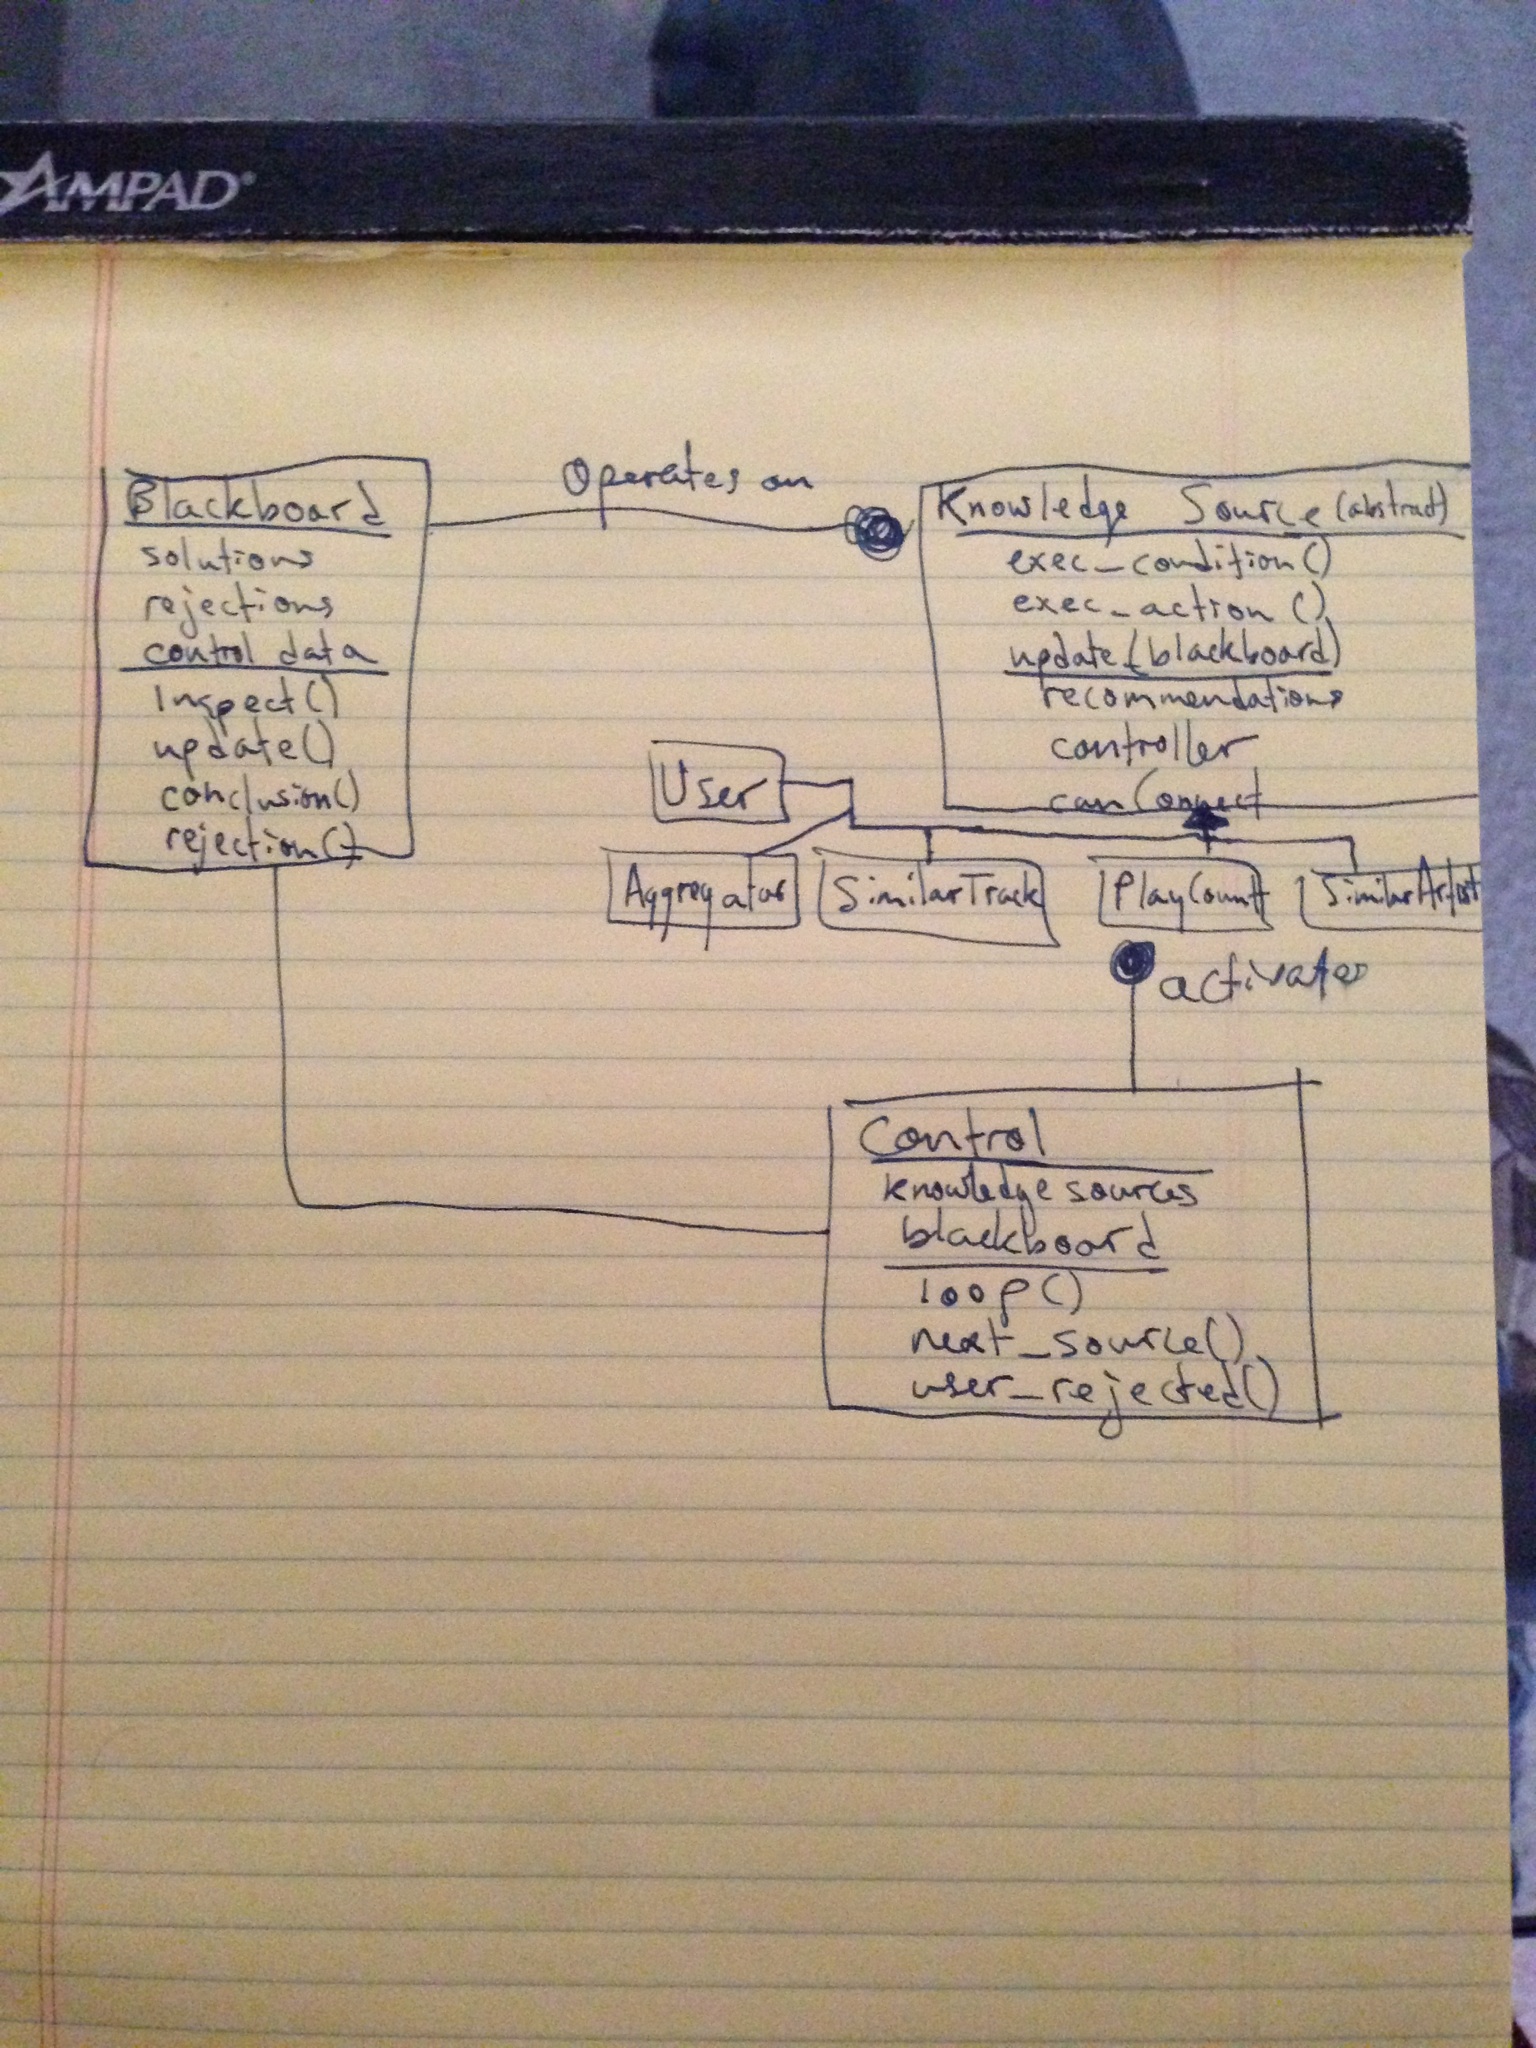 AMPAD®
Operates on
Blackboard
solutions
rejections
control data
inspect()
update()
conclusion()
rejection()
Knowledge Source (abstract)
exec_condition()
exec_action()
update(blackboard)
recommendations
controller
canConnect
User
Aggregator
SimilarTrack
PlayCount
SimilarArtist
activates
Control
knowledge sources
blackboard
loop()
next_source()
user_rejected()